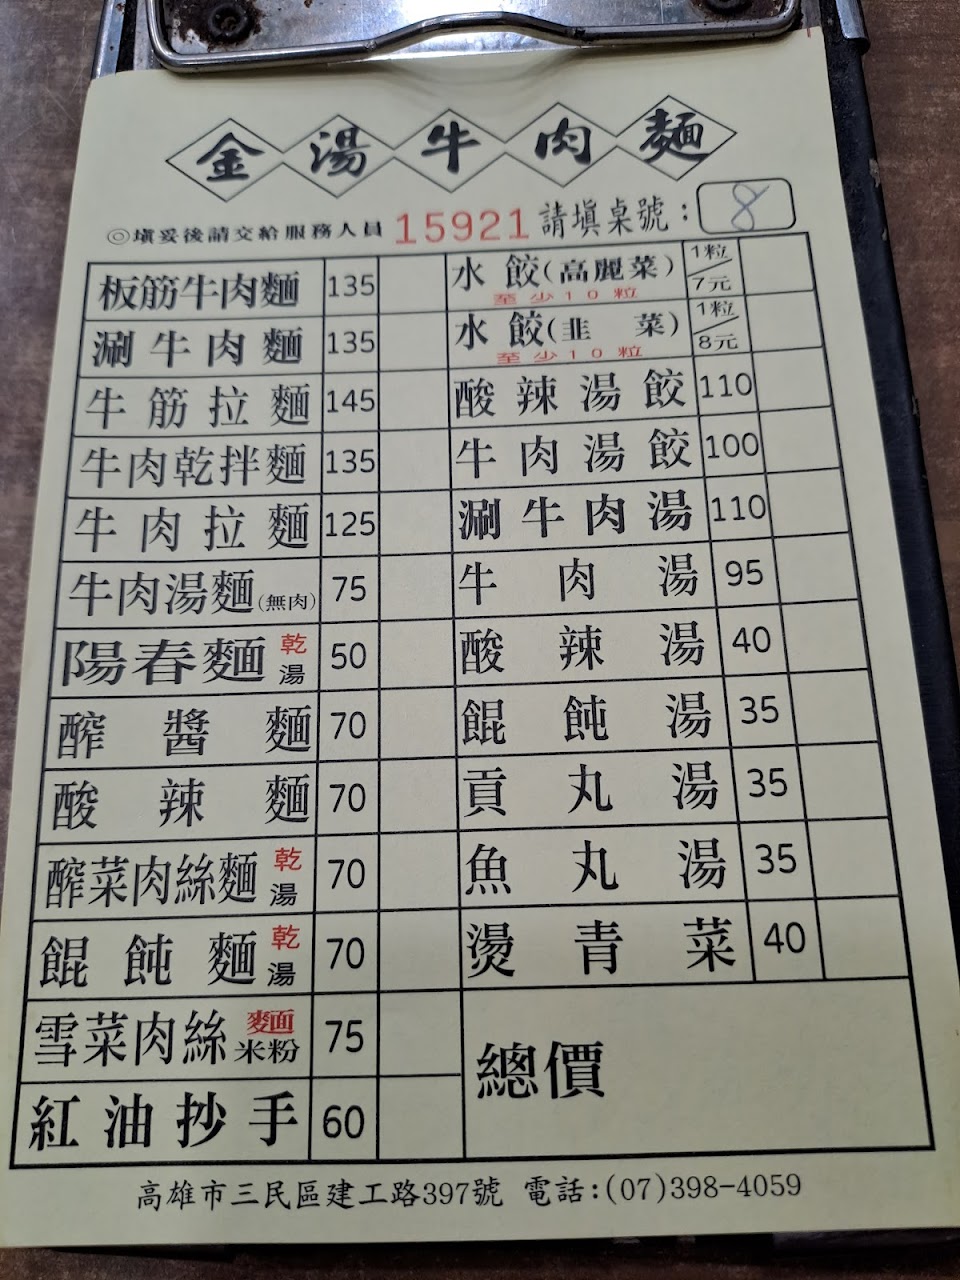 金湯牛肉麵
◎填妥後請交給服務人員 15921 請填桌號：8
板筋牛肉麵 135
涮牛肉麵 135
牛筋拉麵 145
牛肉乾拌麵 135
牛肉拉麵 125
牛肉湯麵(無肉) 75
陽春麵 乾 湯 50
醡醬麵 70
酸辣麵 70
醡菜肉絲麵 乾 湯 70
餛飩麵 乾 湯 70
雪菜肉絲 麵 米粉 75
紅油抄手 60
水餃(高麗菜) 1粒/7元
至少10粒
水餃(韭菜) 1粒/8元
至少10粒
酸辣湯餃 110
牛肉湯餃 100
涮牛肉湯 110
牛肉湯 95
酸辣湯 40
餛飩湯 35
貢丸湯 35
魚丸湯 35
燙青菜 40
總價
高雄市三民區建工路397號 電話:(07)398-4059